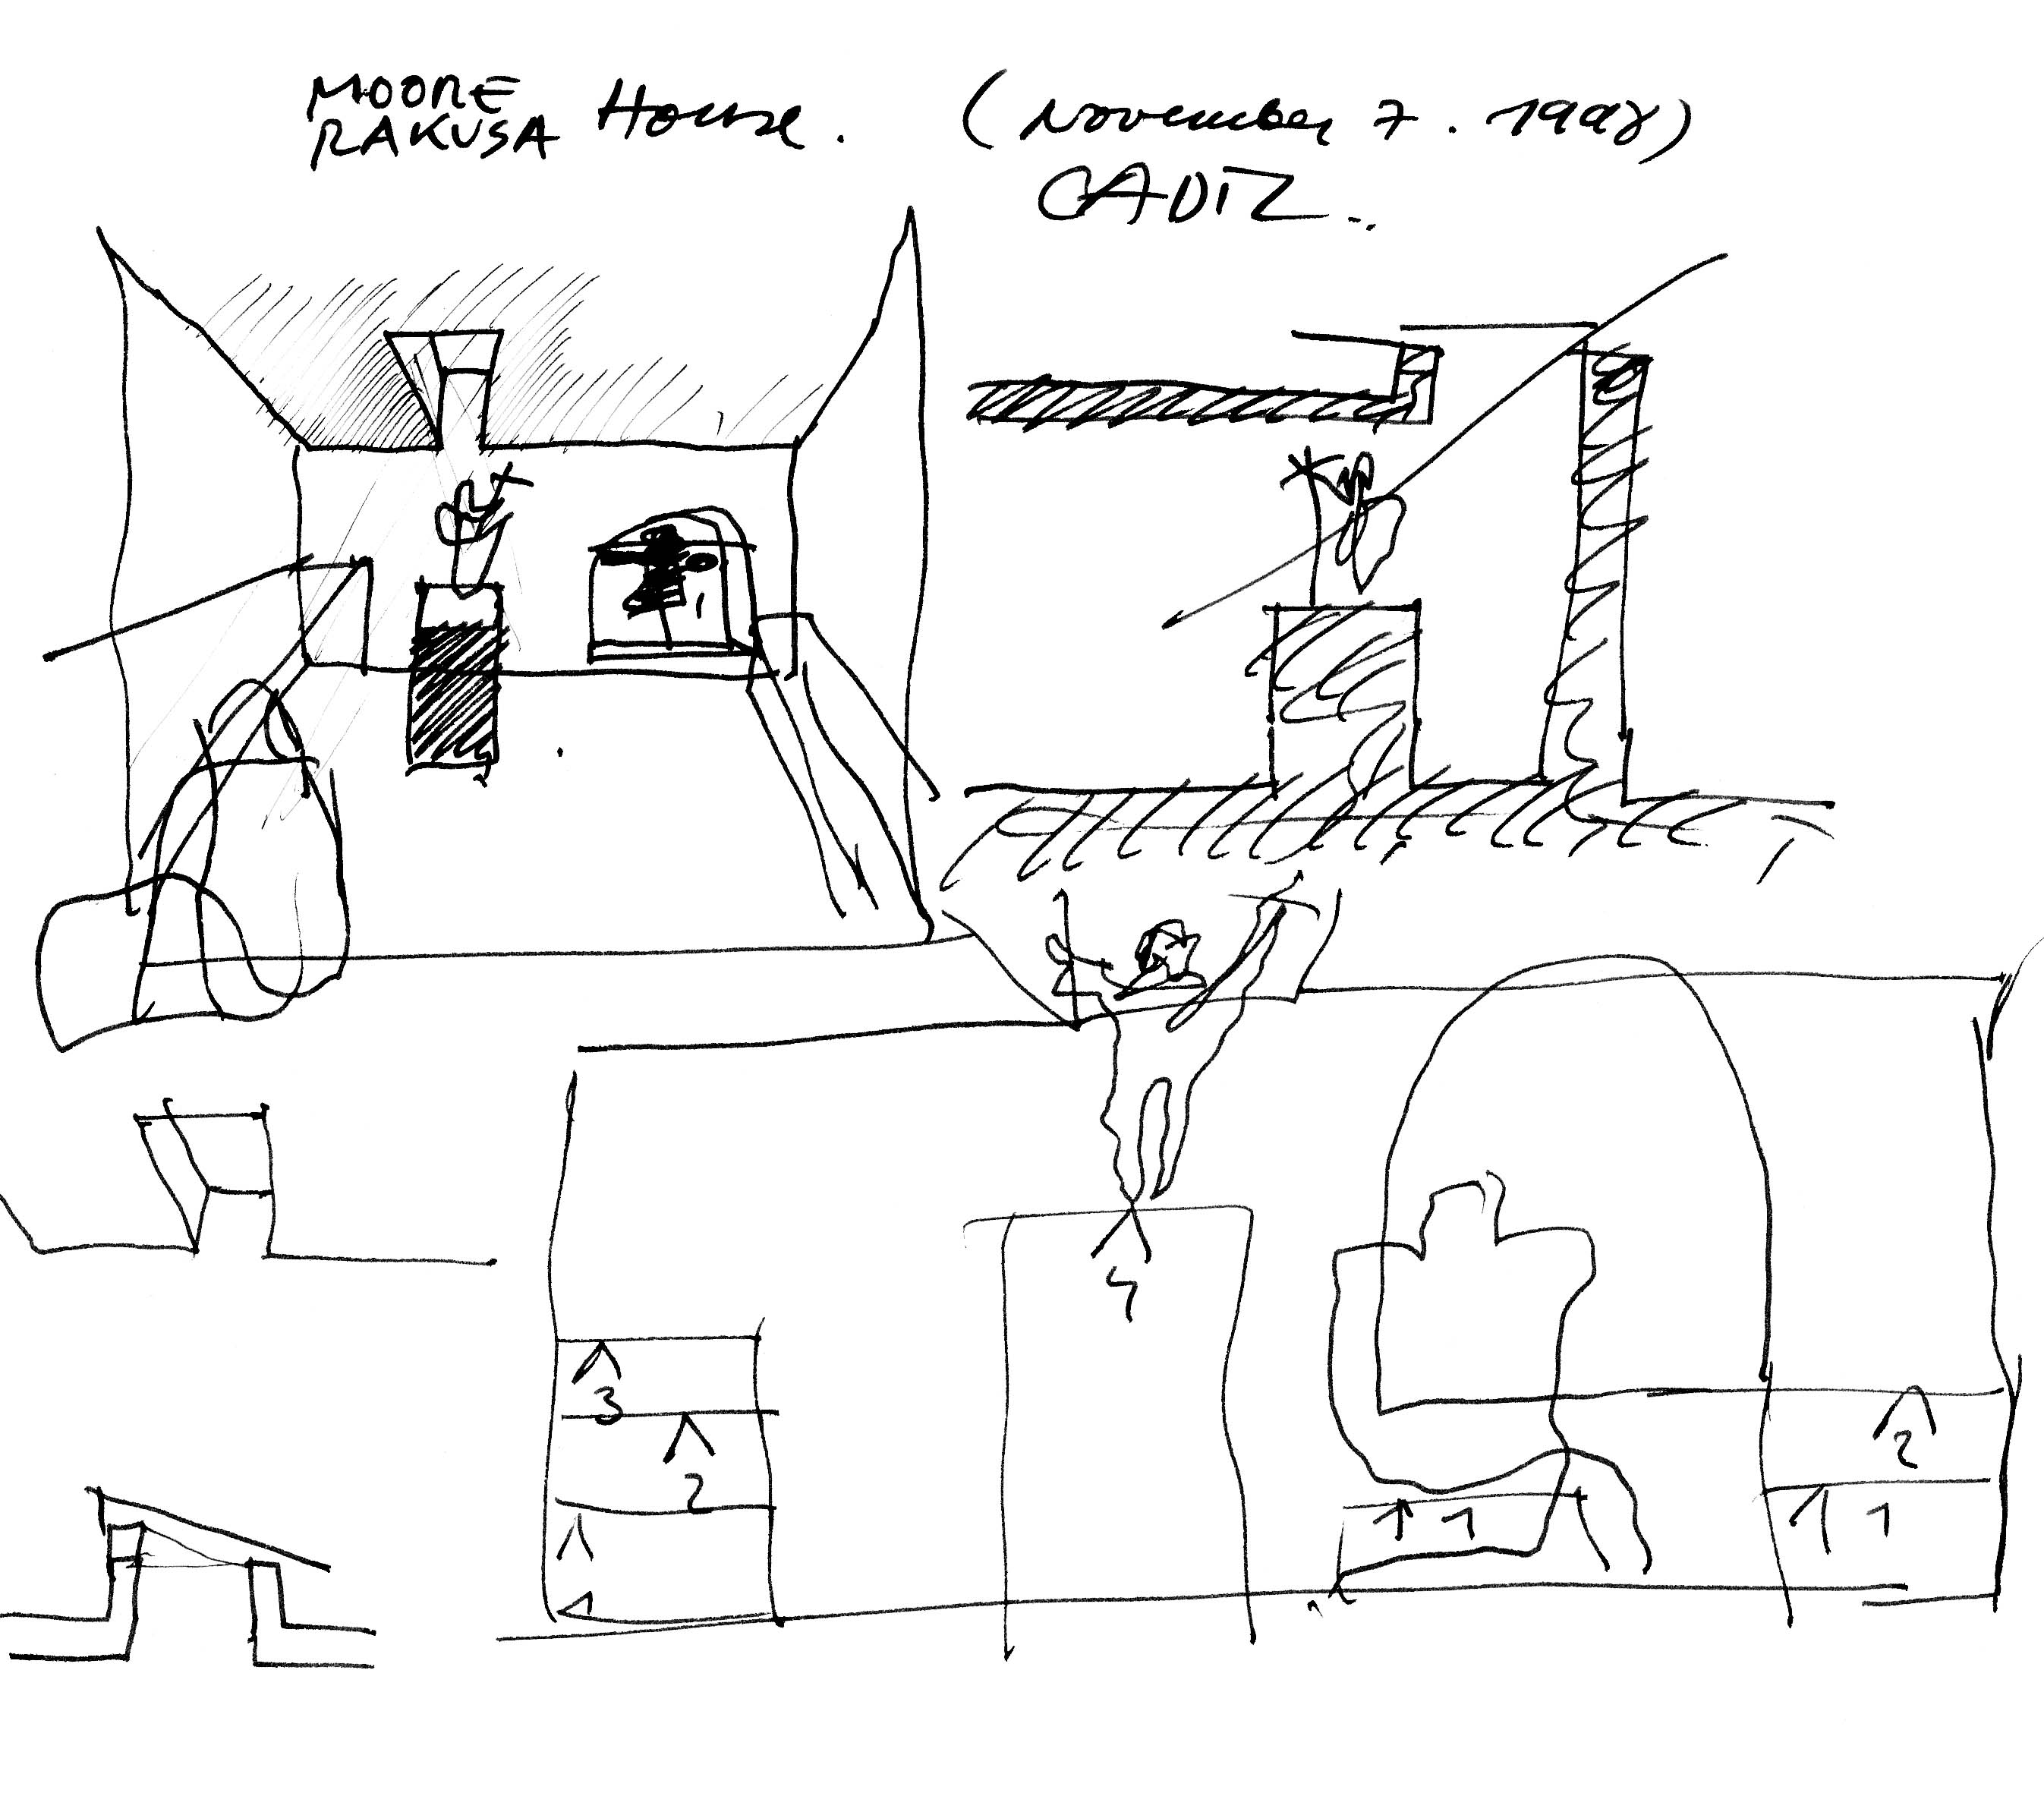 MOORE
RAKUSA House. (November 7. 1998)
CADIZ..
4
3
2
2
1
1
1